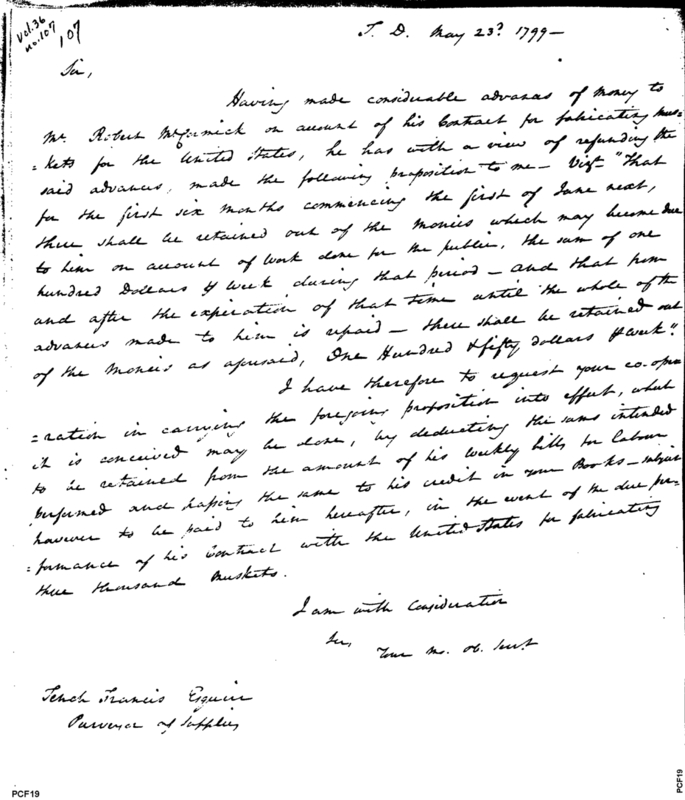 Vol. 36
no. 107
107
T. D. May 23d. 1799 —
Sir,
Having made considerable advances of Money to
Mr. Robert McCormick on account of his Contract for fabricating Mus-
=kets for the United States, he has with a view of refunding the
said advances, made the following proposition to me — Vizt. "That
for the first six Months commencing the first of June next,
there shall be retained out of the Monies which may become due
to him on account of Work done for the public, the sum of one
hundred Dollars ⅌ Week during that period — and that from
and after the expiration of that time until the whole of the
advances made to him is repaid — there shall be retained out
of the Monies as aforesaid, One Hundred & fifty dollars ⅌ Week".
I have therefore to request your co-ope
=ration in carrying the foregoing proposition into effect, which
it is conceived may be done, by deducting the sums intended
to be retained from the amount of his Weekly bills for Labour
performed and passing the same to his credit in your Books — subject
however to be paid to him hereafter, in the event of the due per-
=formance of his Contract with the United States for fabricating
three thousand Muskets.
I am with Consideration
Sir,
Your Mo. Ob. Servt
Tench Francis Esquire
Purveyor of Supplies
PCF19
PCF19